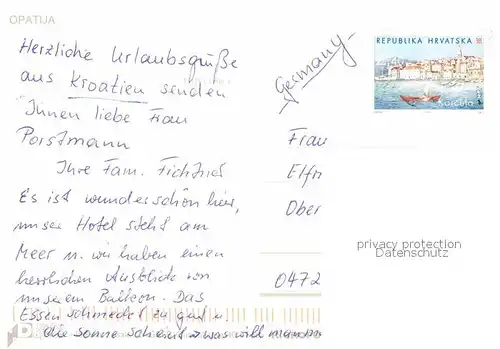 OPATIJA
Herzliche Urlaubsgrüße
aus Kroatien senden
Ihnen liebe Frau
Porstmann
Ihre Fam.
Es ist wunderschön hier,
unser Hotel steht am
Meer u. wir haben einen
herrlichen Ausblick von
unserem Balkon. Das
Essen schmeckt zu gut u.
die Sonne scheint was will man m
Germany
REPUBLIKA HRVATSKA
Korčula
Frau
Elfr
Ober
privacy protection
Datenschutz
0472